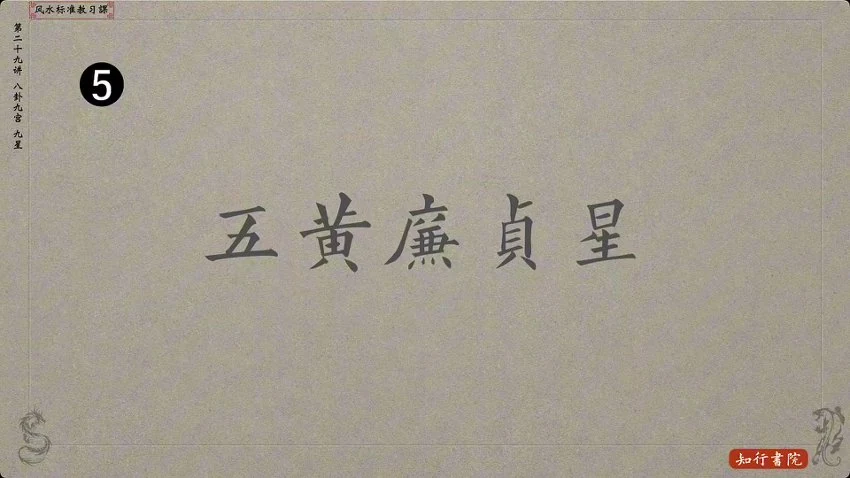 风水标准教习課
第二十九讲 八卦九宫 九星
5
五黄廉貞星
知行書院